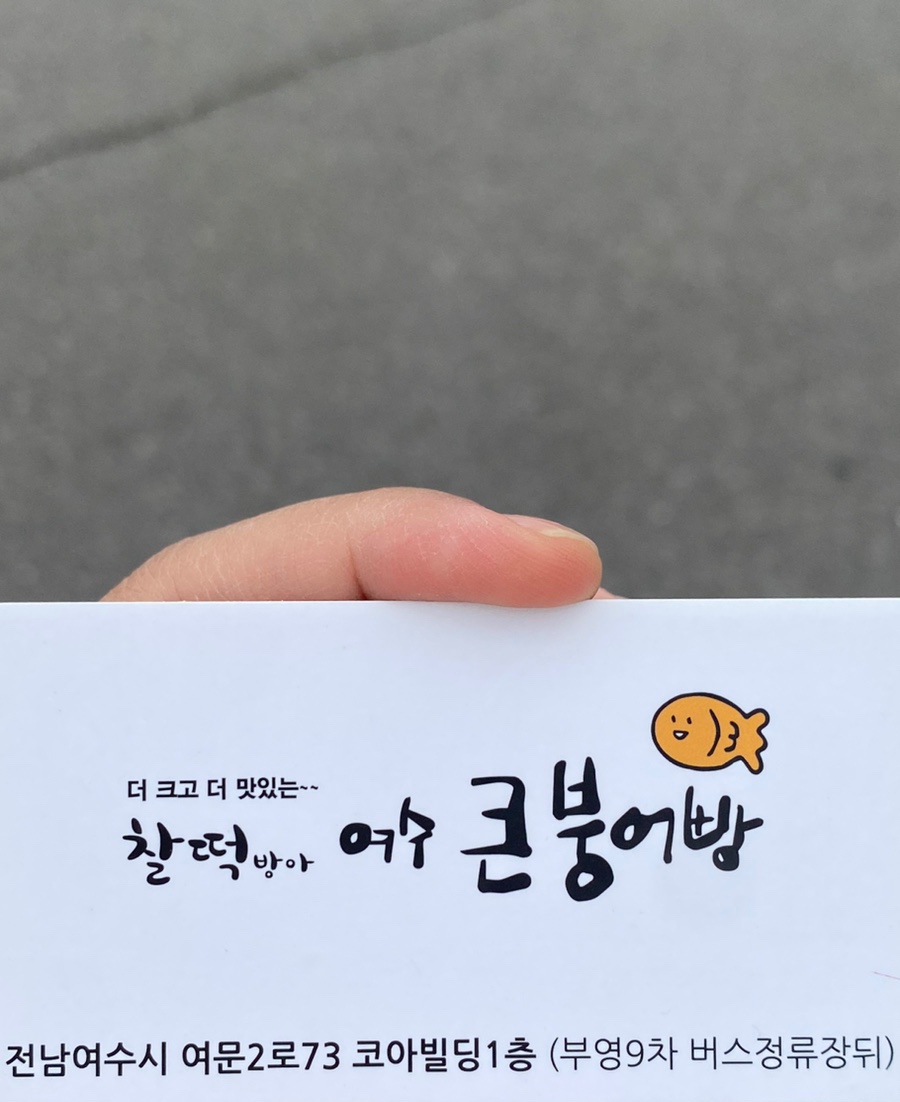 더 크고 더 맛있는~~
찰떡방아 여수 큰붕어빵
전남여수시 여문2로73 코아빌딩1층 (부영9차 버스정류장뒤)